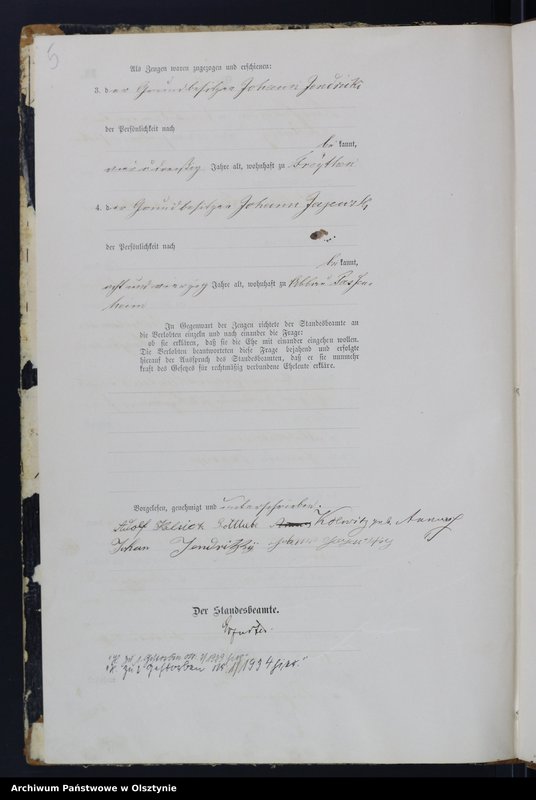 5
Als Zeugen waren zugezogen und erschienen:
3. der Grundbesitzer Johann Jendritzki
der Persönlichkeit nach
be kannt,
vierunddreißig Jahre alt, wohnhaft zu
4. der Grundbesitzer Johann
der Persönlichkeit nach
be kannt,
acht und vierzig Jahre alt, wohnhaft zu Abbau Passen-
heim
In Gegenwart der Zeugen richtete der Standesbeamte an
die Verlobten einzeln und nach einander die Frage:
ob sie erklären, daß sie die Ehe mit einander eingehen wollen.
Die Verlobten beantworteten diese Frage bejahend und erfolgte
hierauf der Ausspruch des Standesbeamten, daß er sie nunmehr
kraft des Gesetzes für rechtmäßig verbundene Eheleute erkläre.
Vorgelesen, genehmigt und unterschrieben:
Adolf Gottlieb Kolwitz geb.
Johan Jendritzki
Der Standesbeamte.
zu 1 gestorben Nr.
zu 2 gestorben Nr. 1934 hier.
Archiwum Państwowe w Olsztynie